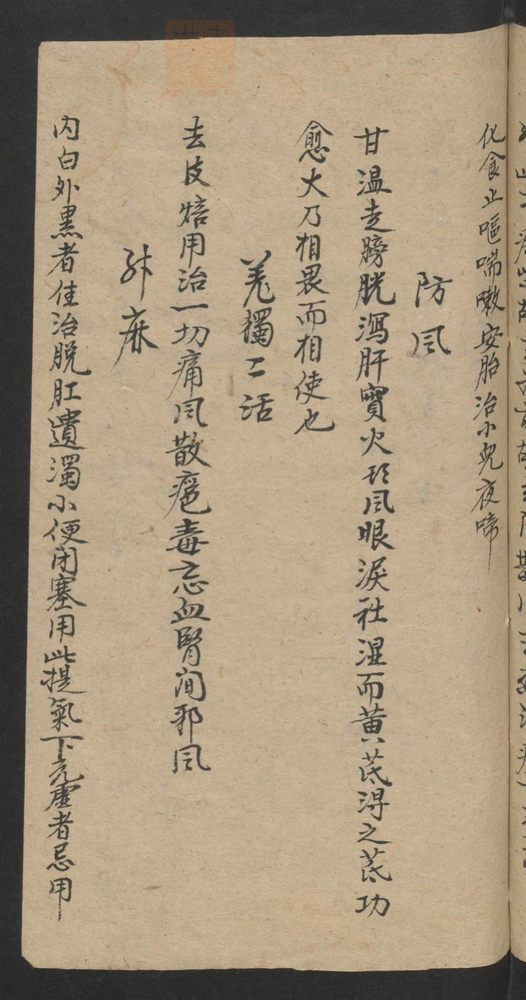 化食止嘔喘嗽安胎治小兒夜啼
防风
甘温走膀胱瀉肝實火頭风眼淚祛湿而黄芪淂之芪功
愈大乃相畏而相使也
羌獨二活
去皮焙用治一切痛风散瘡毒忘血腎间邪风
升麻
内白外黒者佳治脱肛遺濁小便闭塞用此提氣下元虚者忌用